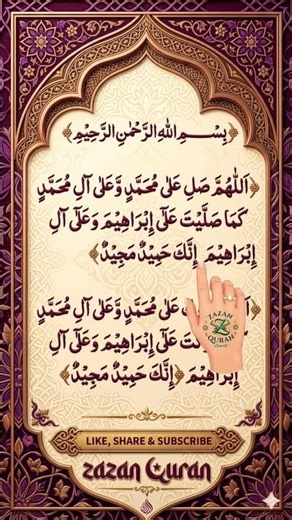 ﴿بِسْمِ اللهِ الرَّحْمٰنِ الرَّحِيْمِ﴾
﴿اَللّٰهُمَّ صَلِ عَلٰى مُحَمَّدٍ وَّعَلٰى آلِ مُحَمَّدٍ
كَمَا صَلَّيْتَ عَلٰى إِبْرَاهِيْمَ وَعَلٰى آلِ
إِبْرَاهِيْمَ إِنَّكَ حَمِيْدٌ مَجِيْدٌ﴾
عَلٰى مُحَمَّدٍ وَّعَلٰى آلِ مُحَمَّدٍ
عَلٰى إِبْرَاهِيْمَ وَعَلٰى آلِ
إِبْرَاهِيْمَ ﴿إِنَّكَ حَمِيْدٌ مَجِيْدٌ﴾
ZAZAN
QURAN
LIKE, SHARE & SUBSCRIBE
zazan Quran